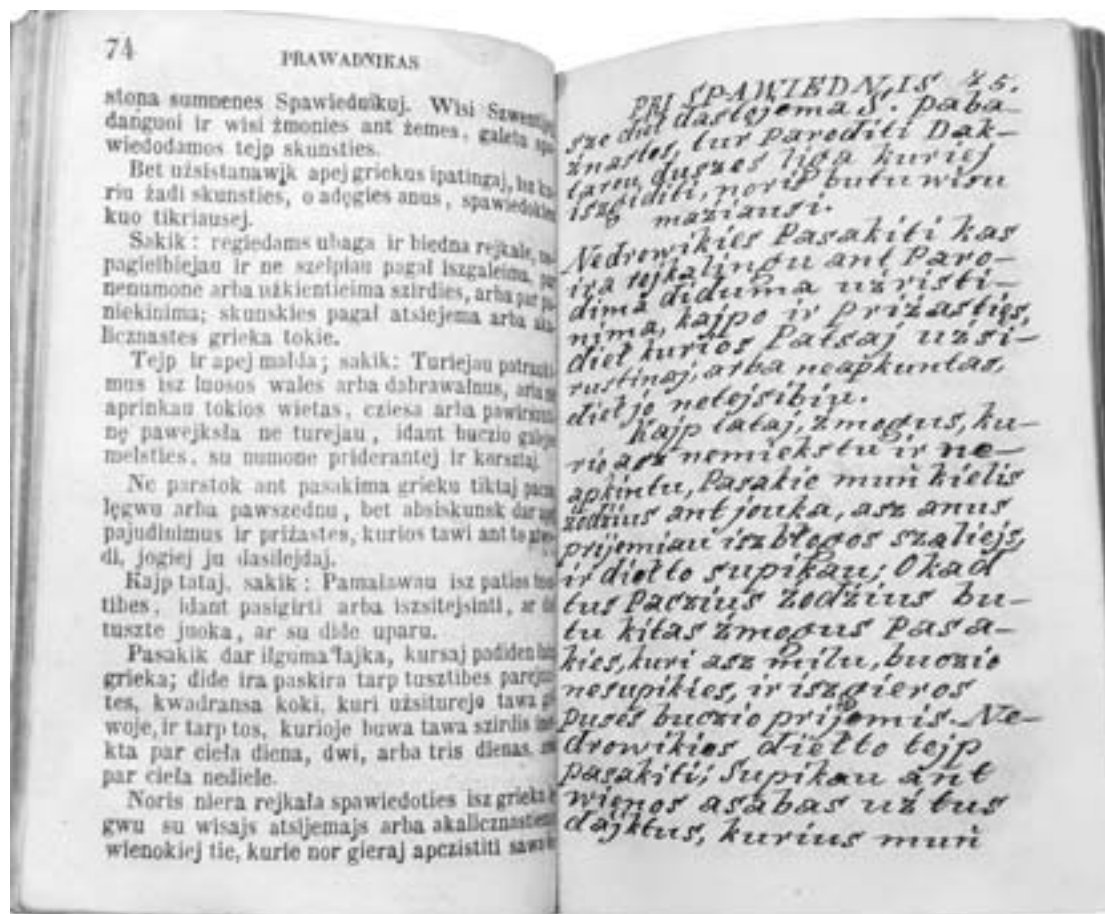 74
PRAWADNIKAS
stona sumnenes Spawiednikuj. Wisi
danguoi ir wisi žmonies ant žemes, galeta
wiedodamos tejp skunsties.
Bet užsistanawjk apej griekus ipatingaj,
riu žadi skunsties, o adęgies anus,
kuo tikriausej.
Sakik: regiedams ubaga ir biedna rejkale,
pagielbiejau ir ne szelpiau pagal iszgaleima,
nenumone arba užkientieima szirdies, arba par
niekinima; skunskies pagał atsiejema arba
licznastes grieka tokie.
Tejp ir apej malda; sakik: Turiejau
mus isz luosos wales arba dabrawalnus,
aprinkau tokios wietas, cziesa arba
nę pawejksla ne turejau, idant buczio
melsties, su numone priderantej ir karsztaj
Ne parstok ant pasakima grieku tiktaj
lęgwu arba pawszednu, bet absiskunsk dar
pajudinimus ir prižastes, kurios tawi ant
di, jogiej ju dasilejdaj.
Kajp tataj, sakik: Pamaławau isz paties
tibes, idant pasigirti arba iszsitejsinti, ar
tuszte juoka, ar su dide uparu.
Pasakik dar ilguma łajka, kursaj padiden
grieka; dide ira paskira tarp tusztibes
tes, kwadransa koki, kuri užsitureje tawa
woje, ir tarp tos, kurioje buwa tawa szirdis
kta par cieła diena, dwi, arba tris dienas,
par cieła nediele.
Noris niera rejkała spawiedoties isz grieka
gwu su wisajs atsijemajs arba
wienokiej tie, kurie nor gieraj apczistiti
PRI SPAWIEDNIS 75.
dastojemas. paba-
žnastes, tur Paroditi Dak-
tarou duszes liga kuriej
iszgiditi, noris butu wisu
maziausi.
Nedrowikies Pasakiti kas
ira rejkalingu ant Paro-
dima diduma užristi-
nima, kajpo ir Prižasties,
dieł kurios Patsaj užsi-
rustinaj, arba neapkuntas,
dieł jo netejsibiu.
Kajp tataj, žmogus, ku-
rio asz nemiekstu ir ne-
apkintu, Pasakie muń kielis
žodžius ant jouka, asz anus
prijemiau isz błogos szaliejs,
ir dieł to supikau; O kad
tus Paczius žodžius bu-
tu kitas žmogus Pasa-
kies, kuri asz milu, buczio
nesupikies, ir isz gieros
puses buczio prijemis. Ne-
drowikies dieł to tejp
pasakiti; Supikau ant
wienos asabas už tus
dajktus, kurius muń